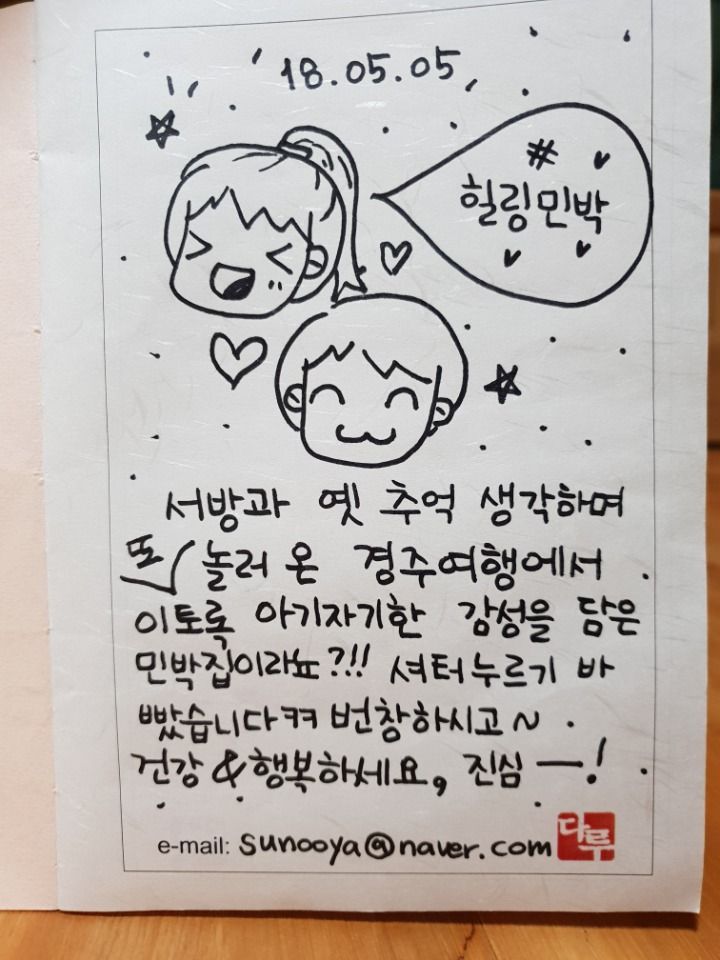 18.05.05
#
힐링민박
서방과 옛 추억 생각하며
또 놀러 온 경주여행에서
이토록 아기자기한 감성을 담은
민박집이라뇨?!!! 셔터누르기 바
빴습니다ㅋㅋ 번창하시고~
건강&행복하세요, 진심ㅡ!
e-mail: sunooya@naver.com
다루